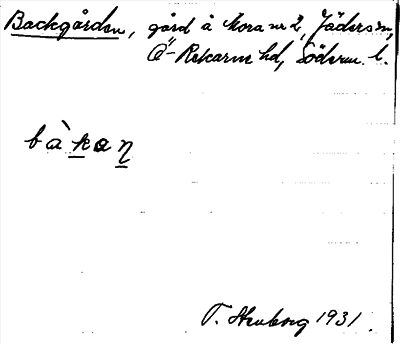 Backgården, gård å Mora nr 2, Jäders sn,
Ö-Rekarne hd, Söderm. l.
bàkan
1931